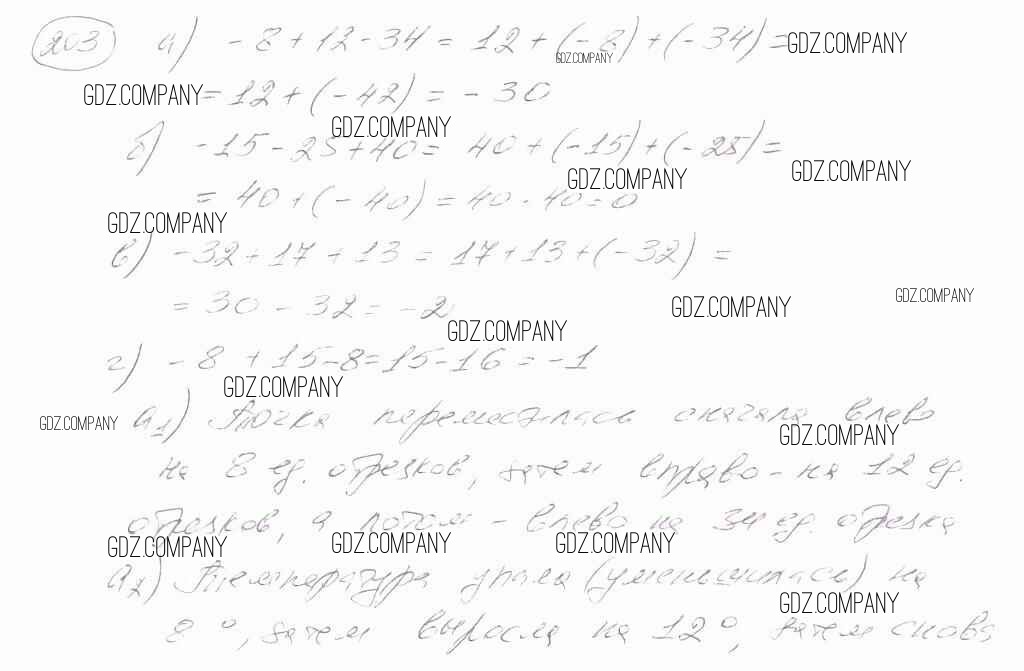 203 а) -8+12-34 = 12+(-8)+(-34)= GDZ.COMPANY
GDZ.COMPANY
GDZ.COMPANY = 12+(-42) = -30
GDZ.COMPANY
б) -15-25+40= 40+(-15)+(-25)=
GDZ.COMPANY GDZ.COMPANY
= 40+(-40)=40-40=0
GDZ.COMPANY
в) -32+17+13 = 17+13+(-32) =
= 30-32=-2 GDZ.COMPANY GDZ.COMPANY
GDZ.COMPANY
г) -8+15-8=15-16=-1
GDZ.COMPANY
GDZ.COMPANY а1) Точка переместилась сначала влево
GDZ.COMPANY
на 8 ед. отрезков, затем вправо - на 12 ед.
отрезков, а потом - влево на 34 ед. отрезка
GDZ.COMPANY GDZ.COMPANY GDZ.COMPANY
а2) Температура упала (уменьшилась) на
GDZ.COMPANY
8°, затем выросла на 12°, затем снова